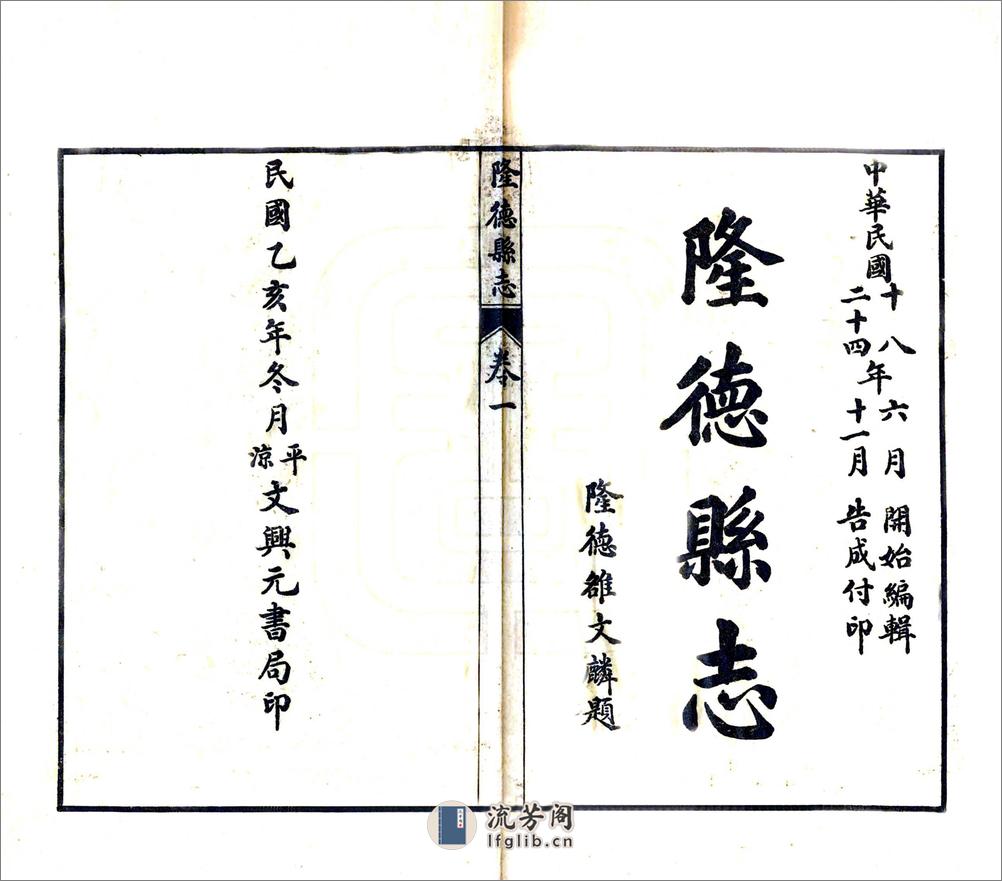 中華民國
十八年六月開始編輯
二十四年十一月告成付印
隆德縣志
隆德雒文麟題
隆德縣志 卷一
民國乙亥年冬月平涼文興元書局印
流芳阁
lfglib.cn